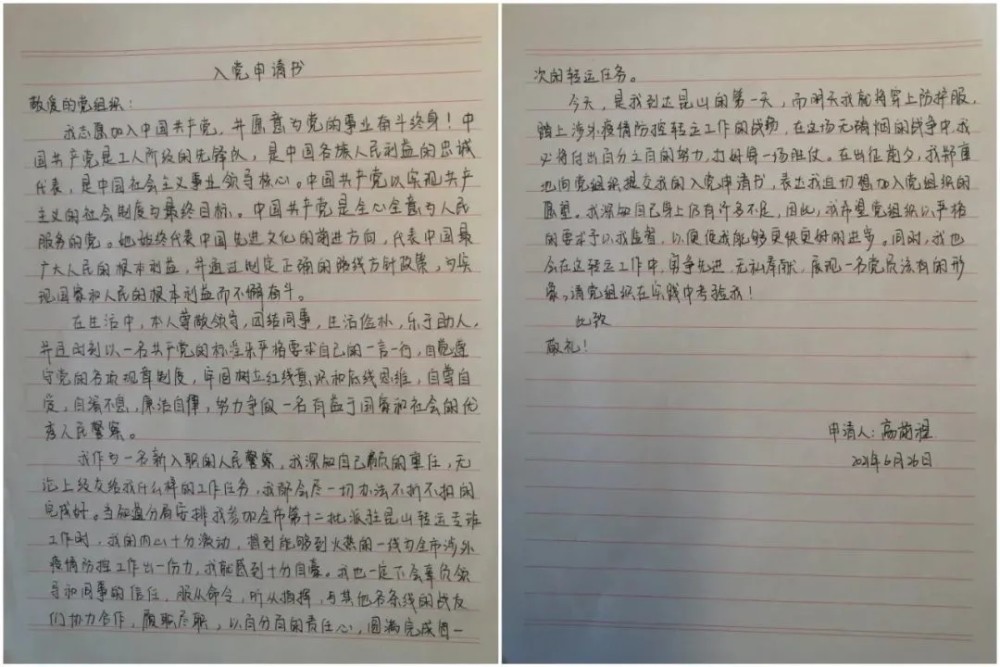 入党申请书
敬爱的党组织：
我志愿加入中国共产党，并愿意为党的事业奋斗终身！中
国共产党是工人阶级的先锋队，是中国各族人民利益的忠诚
代表，是中国社会主义事业领导核心。中国共产党以实现共产
主义的社会制度为最终目标。中国共产党是全心全意为人民
服务的党。她始终代表中国先进文化的前进方向，代表中国最
广大人民的根本利益，并通过制定正确的路线方针政策，为实
现国家和人民的根本利益而不懈奋斗。
在生活中，本人尊敬领导，团结同事，生活俭朴，乐于助人，
并时刻以一名共产党的标准来严格要求自己的一言一行，自觉遵
守党的各项规章制度，牢固树立红线意识和底线思维，自尊自
爱，自强不息，廉洁自律，努力争做一名有益于国家和社会的优
秀人民警察。
我作为一名新入职的人民警察，我深知自己肩负的重任，无
论上级交给我什么样的工作任务，我都会尽一切办法不折不扣的
完成好。当知道分局安排我参加全市第十二批派驻昆山转运专班
工作时，我的内心十分激动，想到能够到火热的一线为全市涉外
疫情防控工作出一份力，我就感到十分自豪。我也一定不会辜负领
导和同事的信任，服从命令，听从指挥，与其他各条线的战友
们协力合作，履职尽职，以百分百的责任心，圆满完成每一
次的转运任务。
今天，是我到达昆山的第一天，而明天我就将穿上防护服，
踏上涉外疫情防控转运工作的战场，在这场无硝烟的战争中，我
必将付出百分之百的努力，打好每一场胜仗。在出征前夕，我郑重
地向党组织提交我的入党申请书，表达我迫切想加入党组织的
愿望。我深知自己身上仍有许多不足，因此，我希望党组织以严格
的要求予以我监督，以便使我能够更快更好的进步。同时，我也
会在这转运工作中，勇争先进，无私奉献，展现一名党员该有的形
象。请党组织在实践中考验我！
此致
敬礼！
申请人：高前程
2021年6月26日